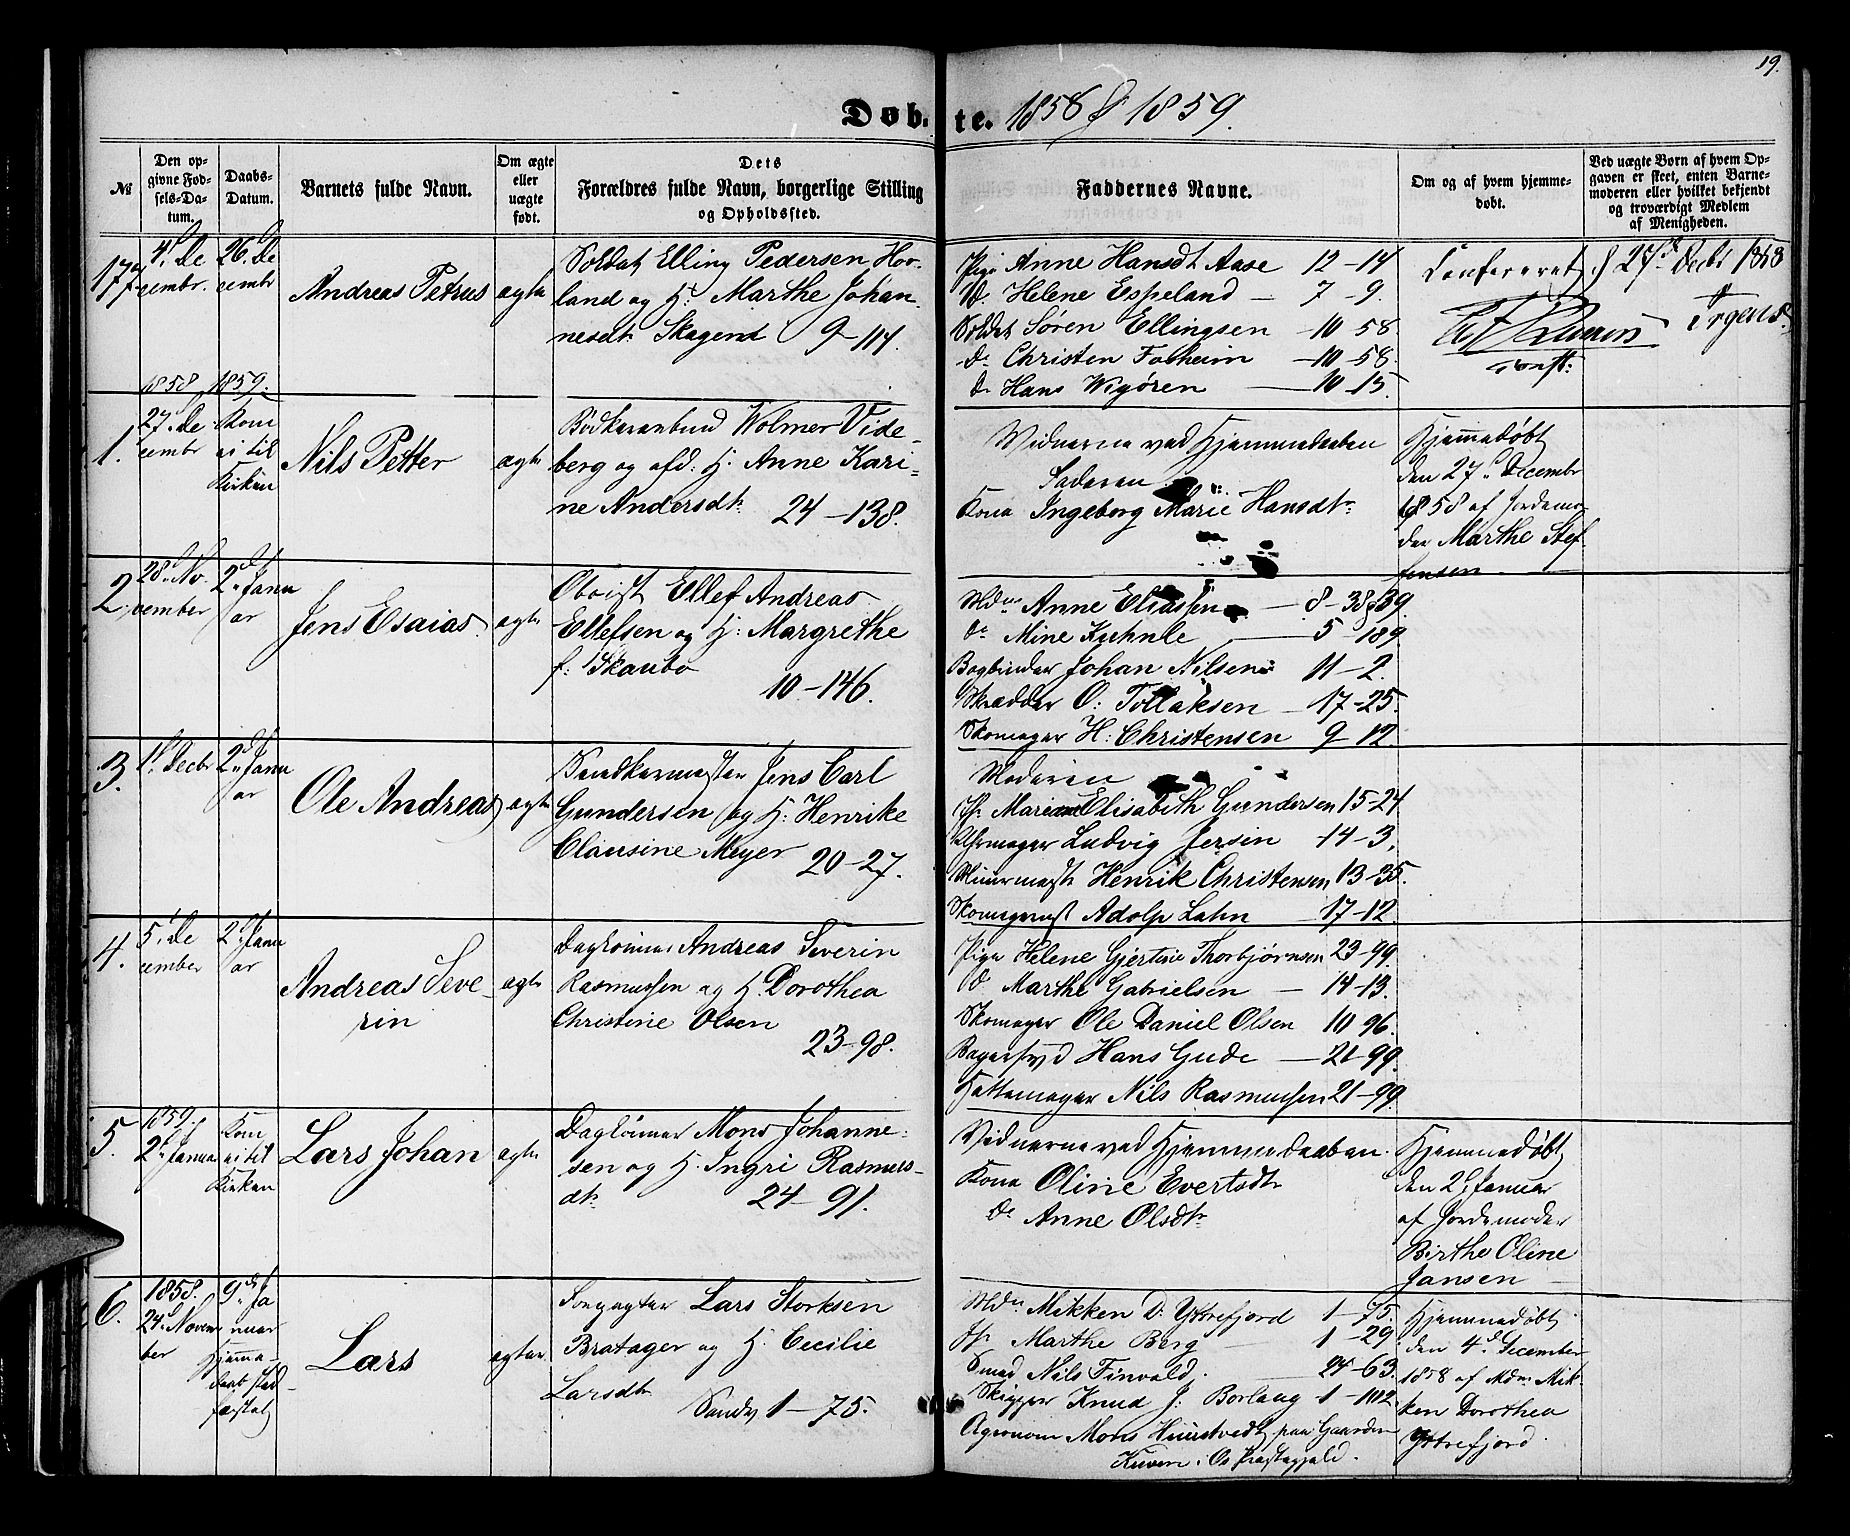 19.
Døbte. 1858 & 1859.
№
Den opgivne Fødsels-Datum.
Daabs-Datum.
Barnets fulde Navn.
Om ægte eller uægte født.
Dets Forældres fulde Navn, borgerlige Stilling og Opholdssted.
Faddernes Navne.
Om og af hvem hjemmedøbt.
Ved uægte Børn af hvem Opgaven er skeet, enten Barnemoderen eller hvilket bekjendt og troværdigt Medlem af Menigheden.
177
4. De
cembr.
26. De
cembr
Andreas Petrus
ægte
Soldat Elling Pedersen Hov-
land og H. Marthe Johan-
nesdt. Skagend 9-114.
Pige Anne Hansdt Aase 12-14
D. Helene Espeland 7-9.
Soldat Søren Ellingsen 10-58
do Christen Foheim 10-58.
do Hans Wigøren 10-15.
Confereret d 27de Decbr 1858
Const:
1.
1858
27. De
cembr
1859.
Kom
ei til
Kirken
Nils Petter
ægte
Bødkersvend Wolmer Vide-
berg og afd. H. Anne Kari-
ne Andersdt. 24-138.
Vidnerne ved Hjemmedaaben
Faderen
Kone Ingeborg Marie Hansdtr.
Hjemmedøbt
den 27d Decembr
1858 af Jordemo-
der Marthe Stef
fensen
2.
28. No.
vember
2d Janu
ar
Jens Esaias.
ægte
Ellef Andreas
Ellefsen og H: Margrethe
f: Skanbo
10-146.
Mdme Anne Eliassen 8-38&39.
do Mine Kuhnle 5-189.
Bogbinder Johan Nilsen 11-2.
Skrædder O: Tollaksen 17-25.
Skomager H: Christensen 9-12.
3.
1. Decbr
2d Janu
ar
Ole Andreas
ægte
Jens Carl
Gundersen og H: Henrike
Clausine Meyer 20-27.
Moderen
Jfr. Mariane Elisabeth Gundersen 15-24
Uhrmager Ludvig Jersin 14-3.
Muurmestr Henrik Christensen 13-35.
Skomagermst Adolp Lahn 17-12.
4.
5. De
cember
2d Janu
ar
Andreas Seve-
rin
ægte
Dagleiner Andreas Severin
Rasmussen og H. Dorothea
Christine Olsen
23-98.
Pige Helene Gjertine Thorbjørnsen 23-99
D Marthe Gabrielsen 14-13.
Skomager Ole Daniel Olsen 10 96.
Bagersvd Hans Gude 21-99.
Hattemager Nils Rasmussen 21-99.
5.
1859.
2d Januar
Kom
ei til
Kirken
Lars Johan
ægte
Dagleiner Mons Johanne-
sen og H. Ingri Rasmus-
dtr. 24-91.
Vidnerne ved Hjemmedaaben.
Kone Oline Evertsdtr
do Anne Olsdtr
Hjemmedøbt
den 2d Januar
af Jordemoder
Birthe Oline
Jansen
6.
1858.
24d Novem
ber
9de Ja
nuar
Hjemme-
daab stad-
fæstet
Lars
ægte
Lars Storksen
Bratager og H. Cecilie
Larsdtr
Sandv 1-75.
Mdme Mikken D. Ystrefjord 1-75.
Jfr Marthe Berg 1-29
Smed Nils Finvold 24-63.
Skipper Knud J: Borlaug 1-102.
Agronom Mons Huustvedt paa Gaarden
Kuven i Os Præstegjeld.
Hjemmedøbt
den 4d December
1858 af Mdme Mik-
ken Dorothea
Ystrefjord.